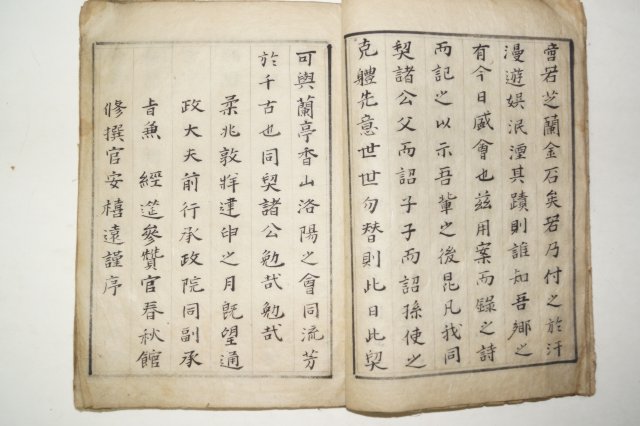 會若芝蘭金石矣若乃付之於汗
漫遊娯泯湮其蹟則誰知吾鄕之
有今日盛會也玆用案而錄之詩
而記之以示吾輩之後昆凡我同
契諸公父而詔子子而詔孫使之
克軆先意世世勿替則此日此契
可與蘭亭香山洛陽之會同流芳
於千古也同契諸公勉哉勉哉
柔兆敦牂建申之月旣望通
政大夫前行承政院同副承
旨兼 經筵參贊官春秋館
修撰官安橲遠謹序